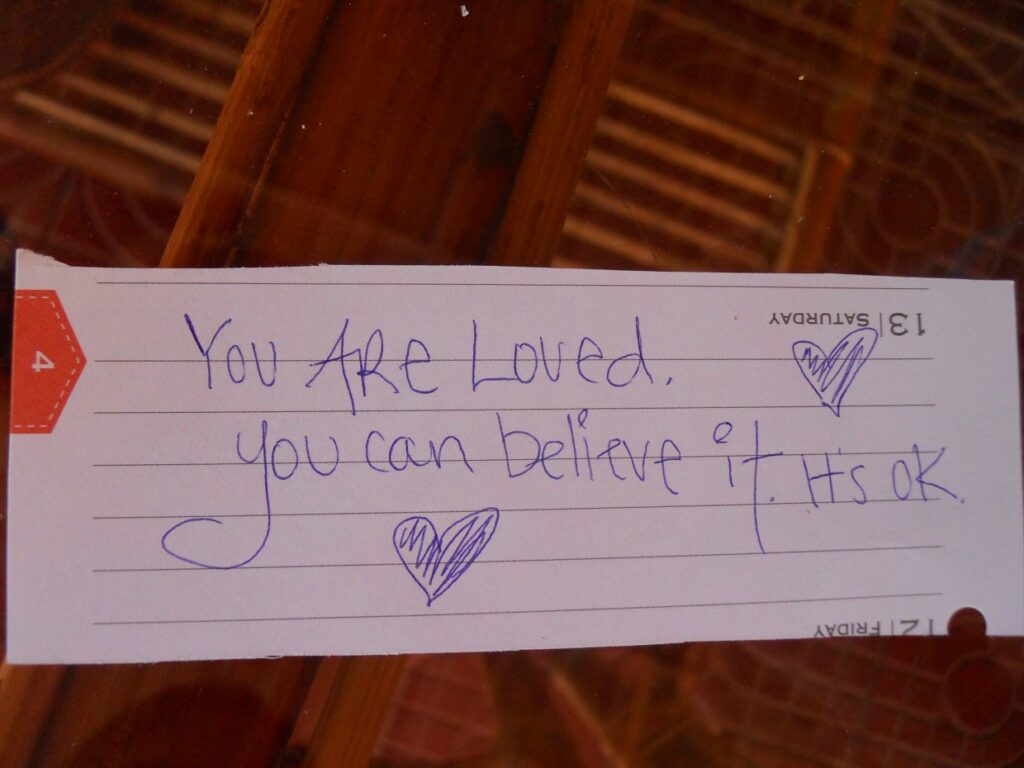 You ARe Loved.
you can believe it. It's OK.
4
13 | SATURDAY
12 | FRIDAY